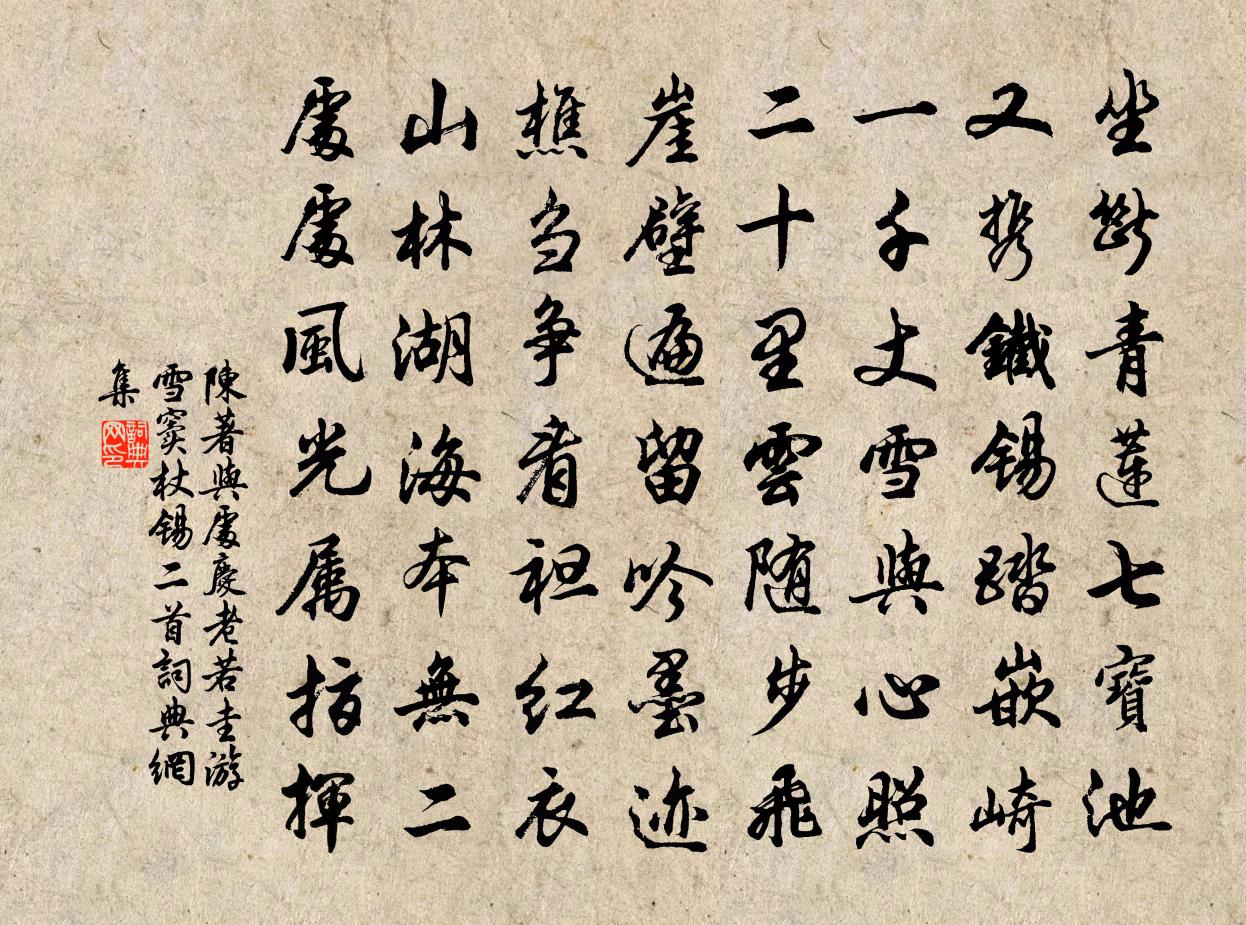 坐斷青蓮七寶池
又携鐵錫踏嵌崎
一千丈雪與心照
二十里雲随步飛
崖壁遍留吟墨迹
樵刍争看袒红衣
山林湖海本無二
處處風光属指揮
陳著與處慶老若圭游
雪竇杖錫二首詞典網
集
詞典网印